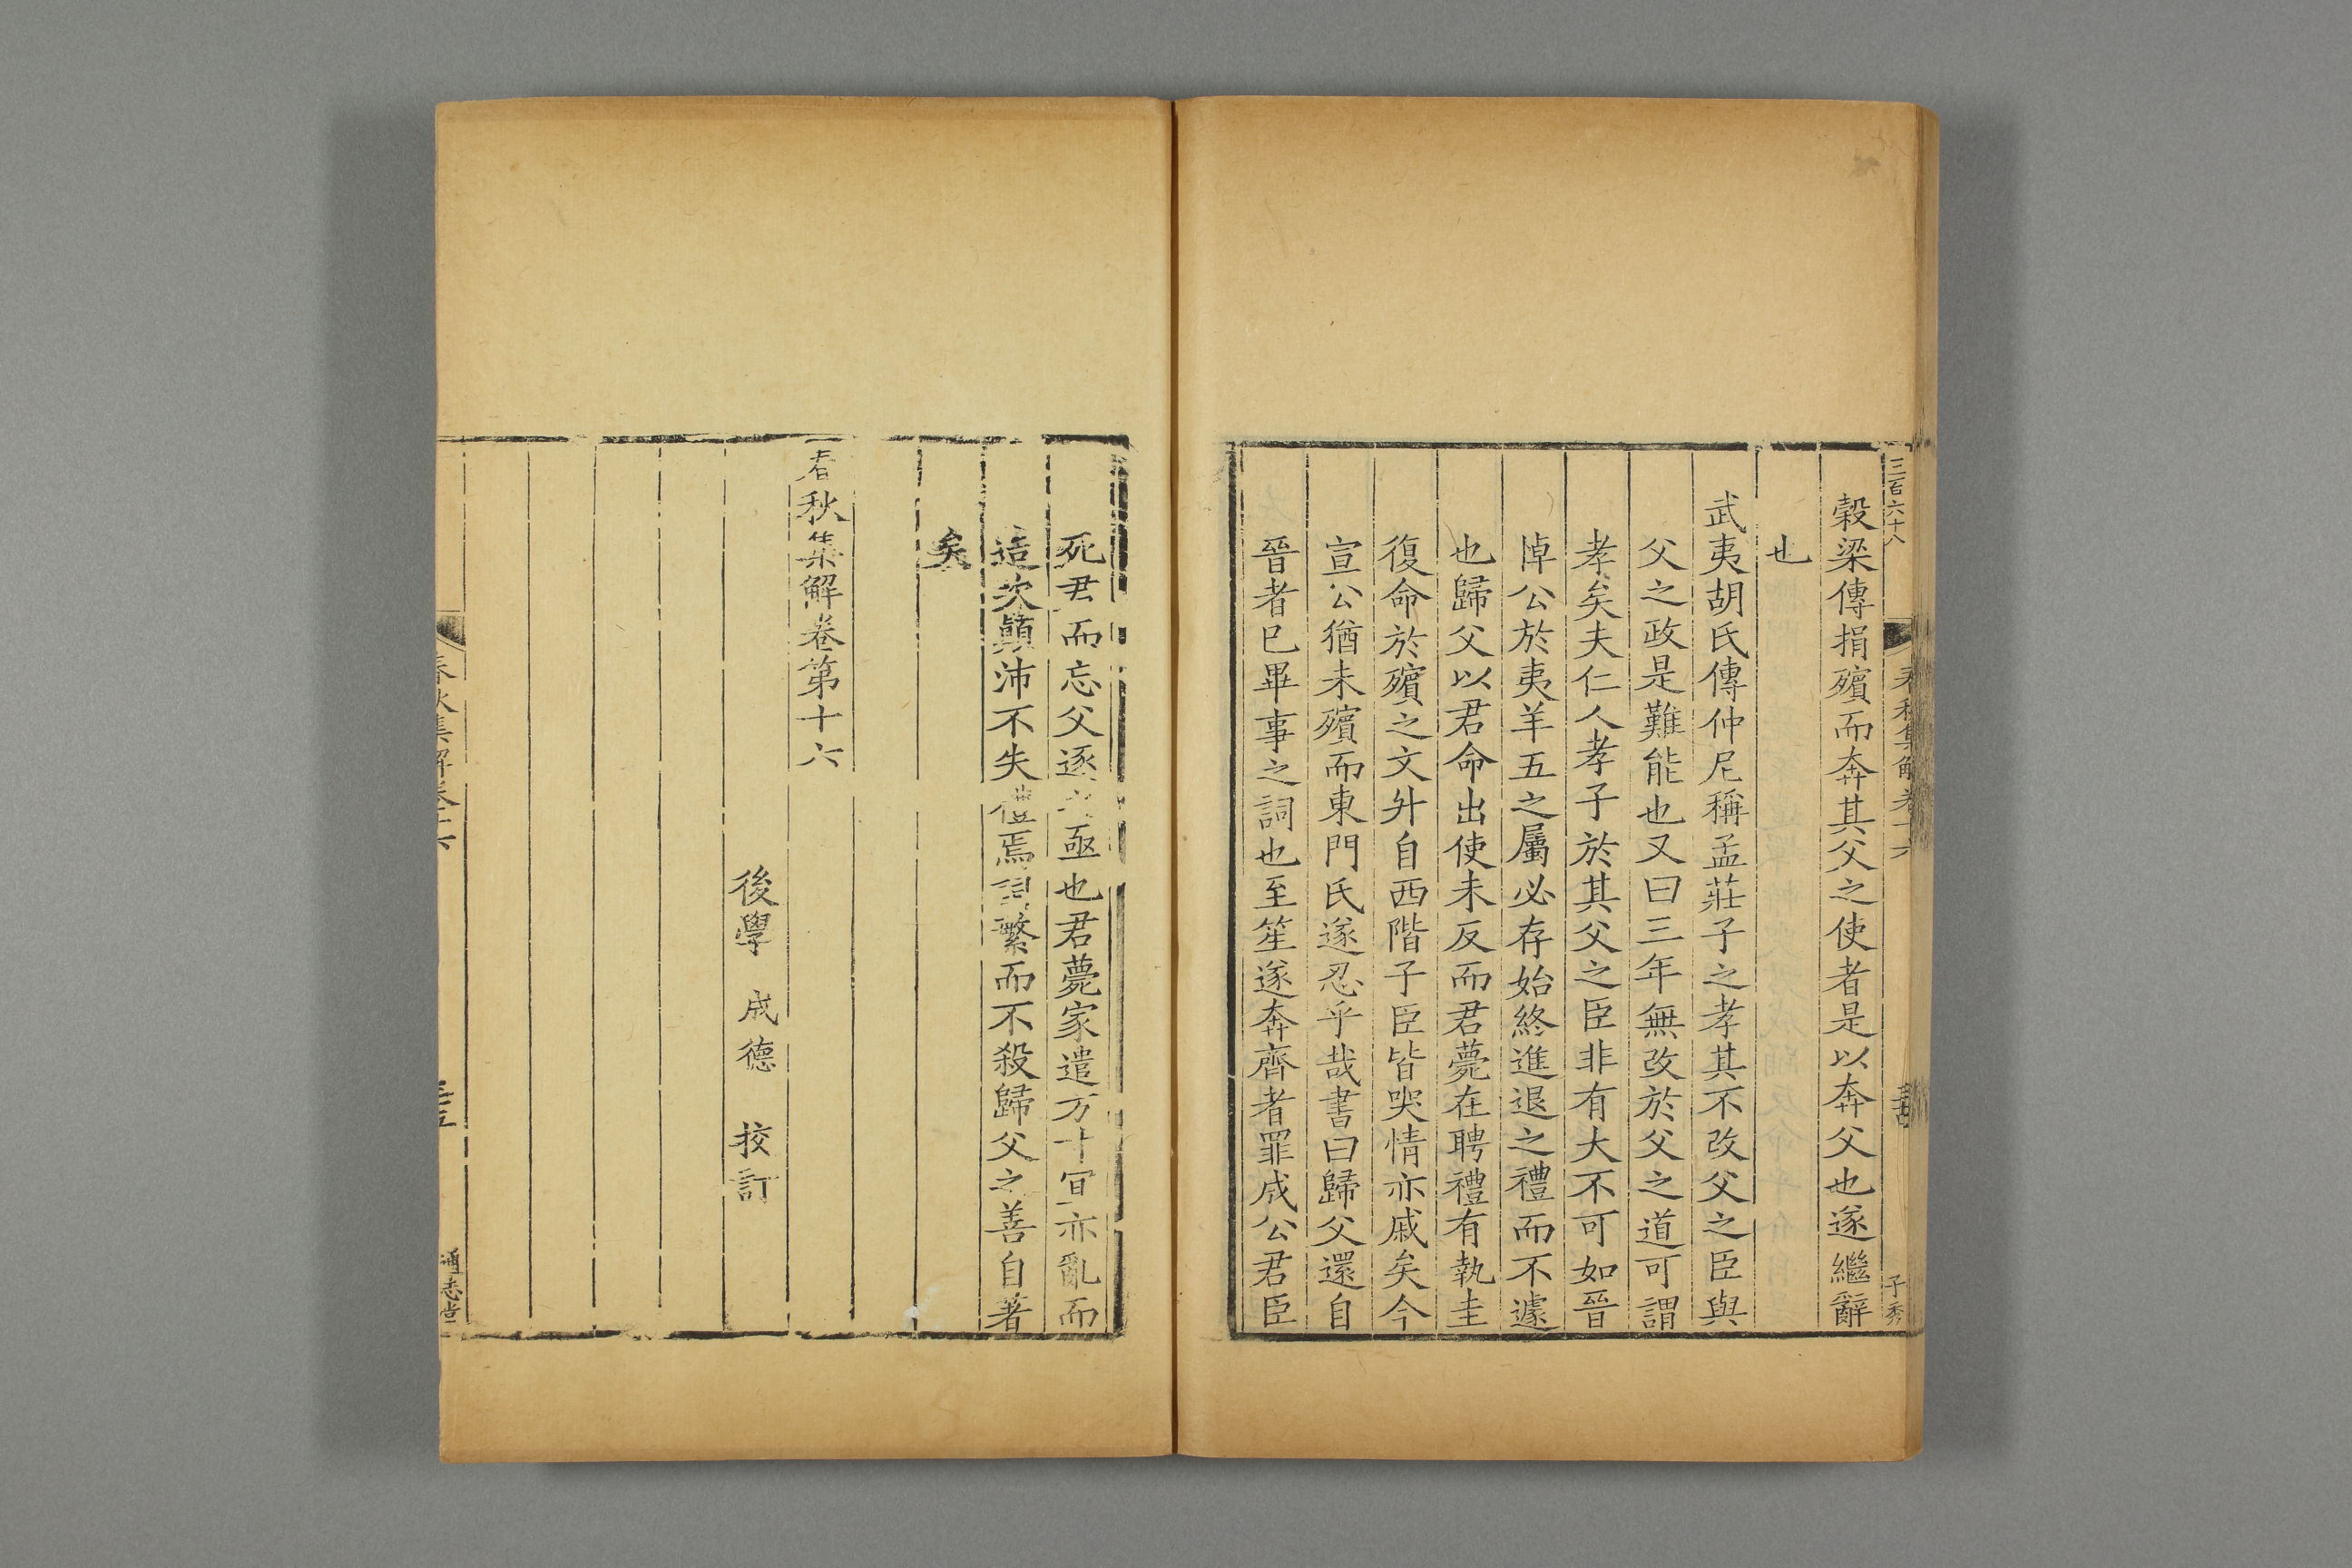 三百六十八
子秀
穀梁傳捐殯而奔其父之使者是以奔父也遂繼辭
也
武夷胡氏傳仲尼稱孟莊子之孝其不改父之臣與
父之政是難能也又曰三年無改於父之道可謂
孝矣夫仁人孝子於其父之臣非有大不可如晉
悼公於夷羊五之屬必存始終進退之禮而不遽
也歸父以君命出使未反而君薨在聘禮有執圭
復命於殯之文升自西階子臣皆哭情亦戚矣今
宣公猶未殯而東門氏遂忍乎哉書曰歸父還自
晉者已畢事之詞也至笙遂奔齊者罪成公君臣
死君而忘父逐亟也君薨家遣方寸宜亦亂而
造次顛沛不失禮焉詞繁而不殺歸父之善自著
矣
春秋集解卷第十六
後學 成德 校訂
春秋集解卷十六
通志堂